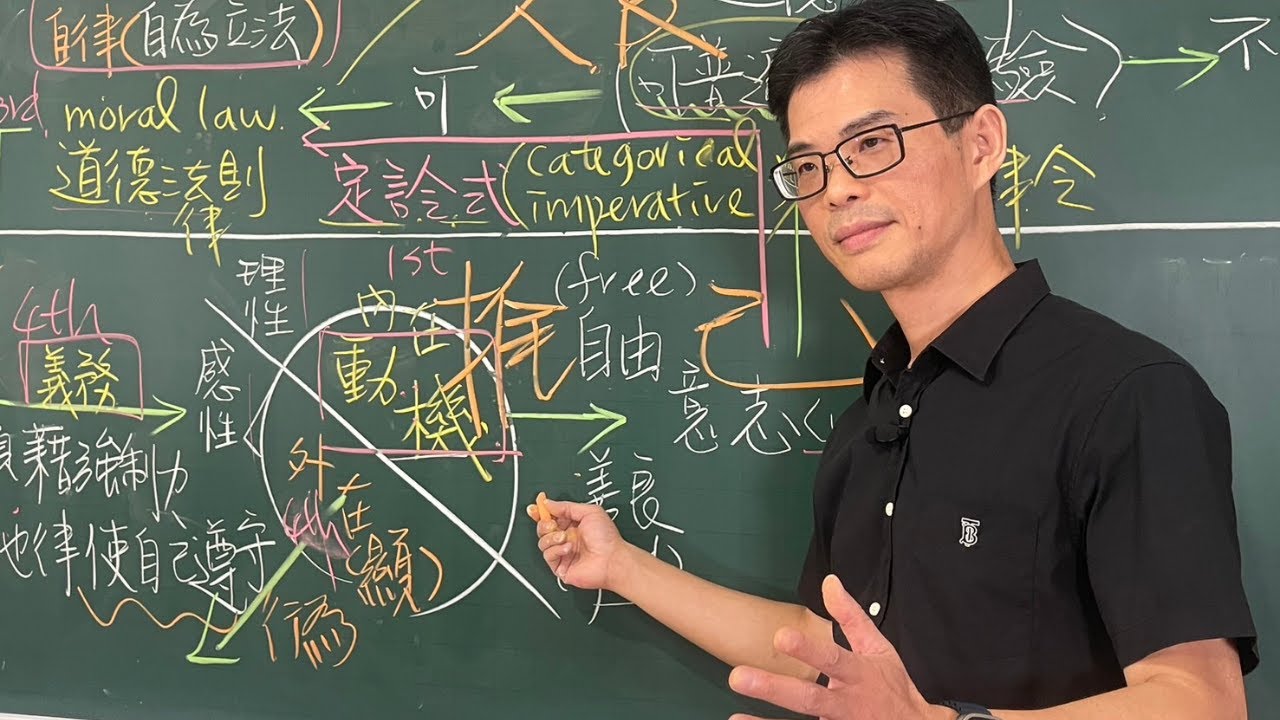 自律(自為立法)
人民
3rd moral law.
可
(可普遍
驗)
不
道德法則
律
定語令式(categorical
imperative
律令
理性
1st
內在
動機
推
(free)
自由
己
意志
4th
義務
感性
善良
藉強制力
他律使自己遵守
外在
4th
(顯)
(偽)